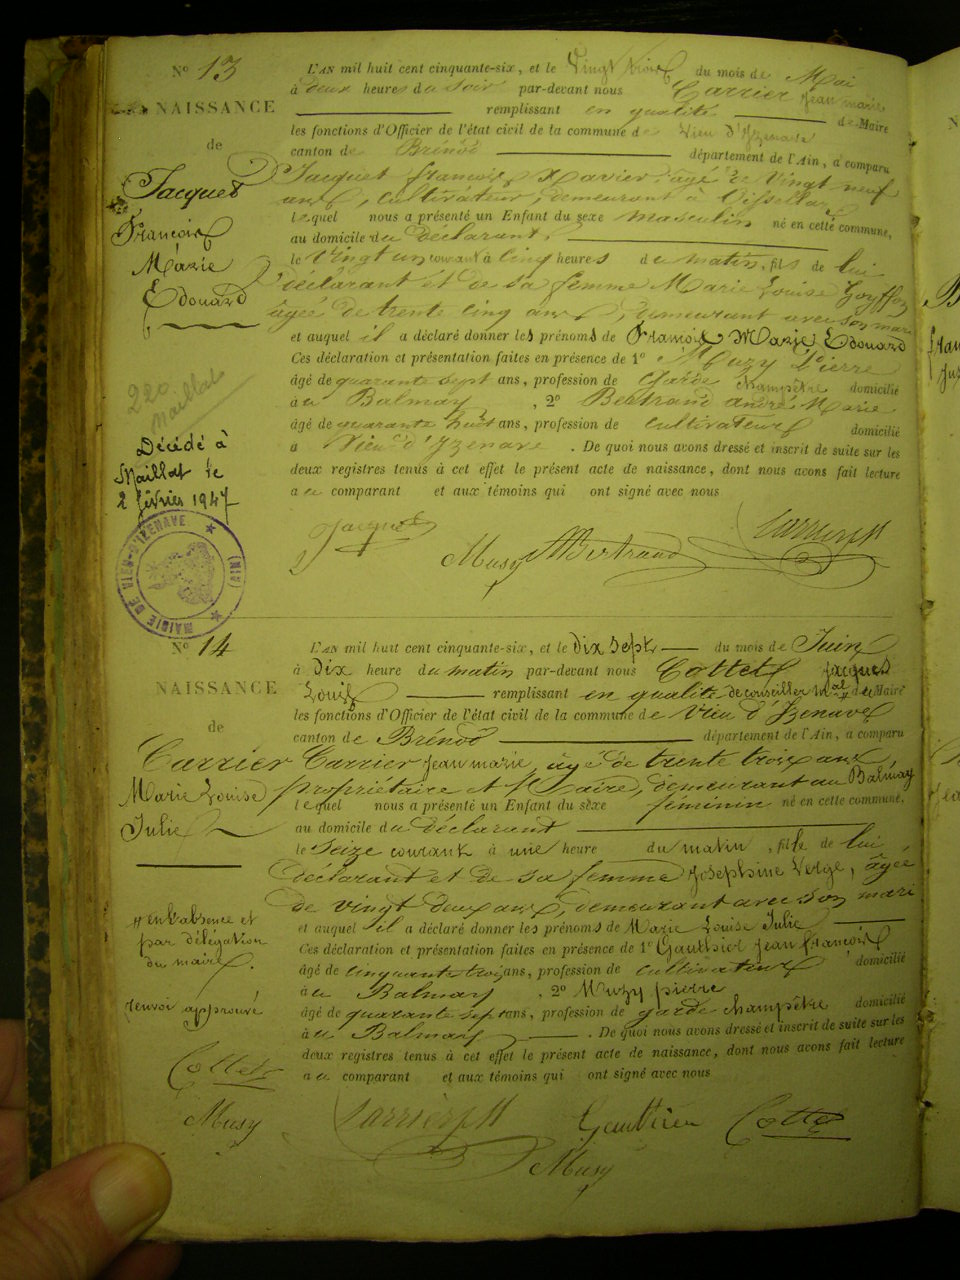 N° 13
NAISSANCE
de
Jacquet
François
Marie
Edouard
L'AN mil huit cent cinquante-six, et le Vingt trois du mois de Mai
à deux heures du soir par-devant nous Carrier Jean marie
remplissant en qualité de Maire
les fonctions d'Officier de l'état civil de la commune de Vieu d'Izenave
canton de Brénod département de l'Ain, a comparu
Jacquet françois Xavier, âgé de Vingt neuf
ans, cultivateur, demeurant à
lequel nous a présenté un Enfant du sexe masculin né en cette commune,
au domicile du déclarant,
le Vingt un courant à cinq heures du matin, fils de lui
déclarant et de sa femme Marie Louise Goyffon
âgée de trente cinq ans, demeurant avec son mari
et auquel il a déclaré donner les prénoms de François Marie Edouard
Ces déclaration et présentation faites en présence de 1° Muzy Pierre
âgé de quarante sept ans, profession de Garde champêtre domicilié
à u Balmay , 2° Bertrand andré Marie
âgé de quarante huit ans, profession de cultivateur domicilié
à Vieu d'Izenave . De quoi nous avons dressé et inscrit de suite sur les
deux registres tenus à cet effet le présent acte de naissance, dont nous avons fait lecture
au comparant et aux témoins qui ont signé avec nous
220
Maillat
Décédé à
Maillat le
2 février 1947
MAIRIE DE VIEU-D'IZENAVE (AIN)
Jacquet
Musy Bertrand Carrier JM
N° 14
NAISSANCE
de
Carrier
Marie Louise
Julie
L'AN mil huit cent cinquante-six, et le Dix Sept du mois de Juin
à Dix heure du matin par-devant nous Cottet Jacques
Louis remplissant en qualité de conseiller mal # de Maire
les fonctions d'Officier de l'état civil de la commune de Vieu d'Izenave
canton de Brénod département de l'Ain, a comparu
Carrier Jean marie, âgé de trente trois ans
propriétaire et Maire, demeurant au Balmay
lequel nous a présenté un Enfant du sexe féminin né en cette commune,
au domicile du déclarant
le Seize courant à une heure du matin , fille de lui
déclarant et de sa femme Josephine Verge, âgée
de vingt deux ans, demeurant avec son mari
et auquel il a déclaré donner les prénoms de Marie Louise Julie
Ces déclaration et présentation faites en présence de 1° Gauthier Jean françois
âgé de cinquante trois ans, profession de cultivateur domicilié
à u Balmay , 2° Muzy pierre
âgé de quarante sept ans, profession de garde champêtre domicilié
à u Balmay . De quoi nous avons dressé et inscrit de suite sur les
deux registres tenus à cet effet le présent acte de naissance, dont nous avons fait lecture
au comparant et aux témoins qui ont signé avec nous
# en l'absence et
par délégation
du maire.
renvoi approuvé
Cottet
Musy Carrier JM Gauthier Cottet
Musy